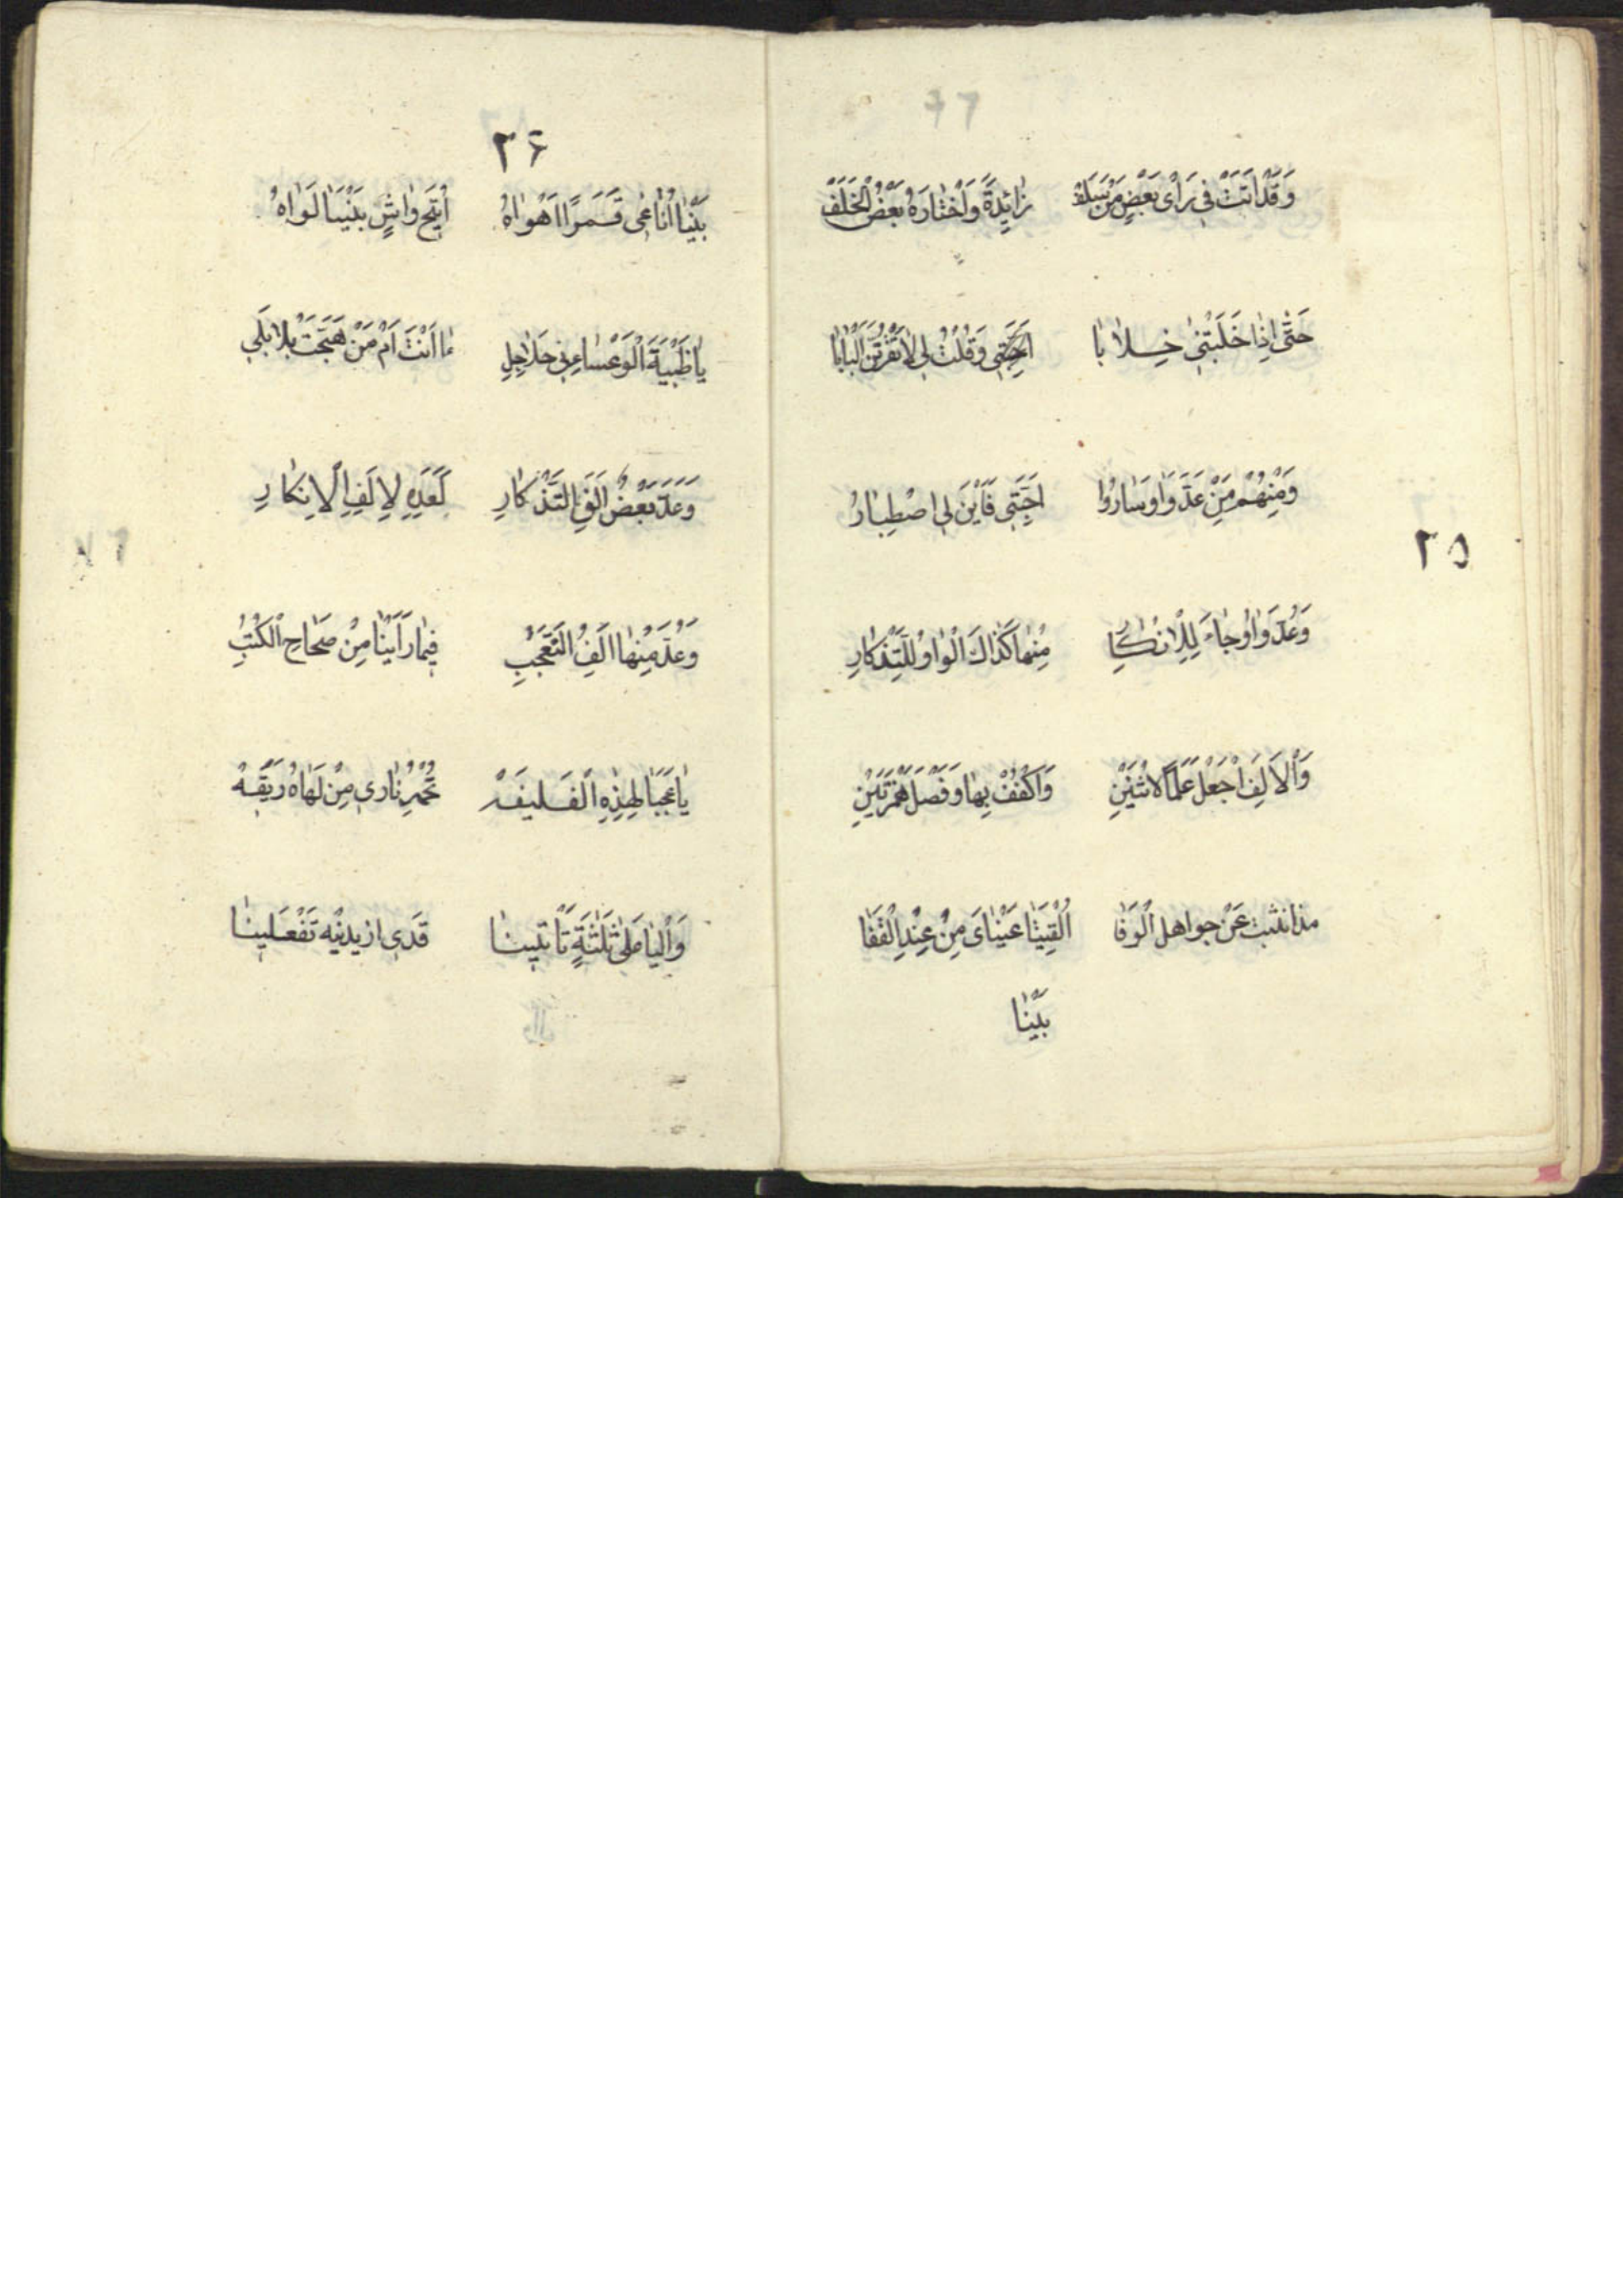 وَقَدْ اَتَتْ فِى رَاْىِ بَعْضٍ مَنْ سَلَفْ زَائِدَةً وَاخْتَارَهُ بَعْضُ الْخَلَفْ
حَتّٰى اِذَا خَلَبَتْنِى خِلَابَا اَحِبَّتِى وَقُلْتُ لِى لَا تَقْرُبَنَّ الْبَابَا
وَمِنْهُمْ مَنْ عَدَّ وَاوَ سَارُوا اَحِبَّتِى فَاَيْنَ لِى اصْطِبَارُ
وَعُدَّ وَاوٌ جَاءَ لِلْاِنْكَارِ مِنْهَا كَذَاكَ الْوَاوُ لِلتِّذْكَارِ
وَالْاَلِفَ اجْعَلْ عَلَمًا لِاثْنَيْنِ وَاكْفُفْ بِهَا وَفَصْلَ هَمْزَتَيْنِ
عَنْ اهل الْوَفَا اُلْقِيَتَا عَيْنَاىَ مِنْ عِنْدِ الْقَفَا
بَيْنَا
٢٥
٢۶
بَيْنَا اُنَاغِى قَمَرًا اَهْوَاهُ اُتِيحَ وَاشٍ بَيْنَنَا لَوَاهُ
يَا ظَبْيَةَ الْوَعْسَاءِ فِى جَلَاجِلِ مَا اَنْتَ اَمْ مَنْ هَيَّجَتْ بَلَابِلِى
وَعَدَّ بَعْضٌ اَلِفَ التَّذْكَارِ كَعَدِّهِ لِاَلِفِ الْاِنْكَارِ
وَعُدَّ مِنْهَا اَلِفُ التَّعَجُّبِ فِيمَا رَاَيْنَا مِنْ صَحَاحِ الْكُتُبِ
يَا عَجَبًا لِهٰذِهِ الْفَلِيقَهْ نَارِى مِنْ لَهَاهُ رَيِّقَهْ
وَالْيَا عَلٰى ثَلٰثَةٍ تَاْتِينَا قَدِى ازيدنيه تَفْعَلِينَا